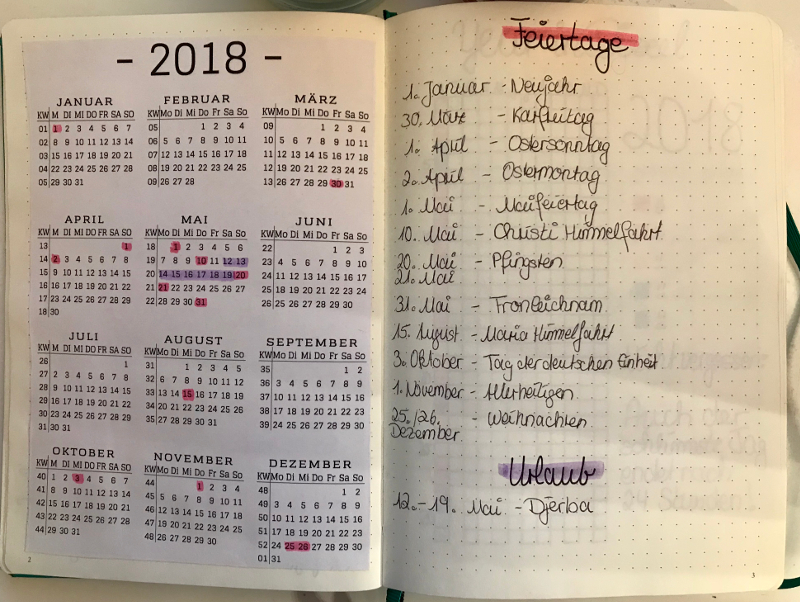 - 2018 -
JANUAR
KW M DI MI DO FR SA SO
01 1 2 3 4 5 6 7
02 8 9 10 11 12 13 14
03 15 16 17 18 19 20 21
04 22 23 24 25 26 27 28
05 29 30 31
FEBRUAR
KW Mo Di Mi Do Fr Sa So
05 1 2 3 4
06 5 6 7 8 9 10 11
07 12 13 14 15 16 17 18
08 19 20 21 22 23 24 25
09 26 27 28
MÄRZ
KW Mo Di Mi Do Fr Sa So
09 1 2 3 4
10 5 6 7 8 9 10 11
11 12 13 14 15 16 17 18
12 19 20 21 22 23 24 25
13 26 27 28 29 30 31
APRIL
KW M DI MI DO FR SA SO
13 1
14 2 3 4 5 6 7 8
15 9 10 11 12 13 14 15
16 16 17 18 19 20 21 22
17 23 24 25 26 27 28 29
18 30
MAI
KW Mo Di Mi Do Fr Sa So
18 1 2 3 4 5 6
19 7 8 9 10 11 12 13
20 14 15 16 17 18 19 20
21 21 22 23 24 25 26 27
22 28 29 30 31
JUNI
KW Mo Di Mi Do Fr Sa So
22 1 2 3
23 4 5 6 7 8 9 10
24 11 12 13 14 15 16 17
25 18 19 20 21 22 23 24
26 25 26 27 28 29 30
JULI
KW M DI MI DO FR SA SO
26 1
27 2 3 4 5 6 7 8
28 9 10 11 12 13 14 15
29 16 17 18 19 20 21 22
30 23 24 25 26 27 28 29
31 30 31
AUGUST
KW Mo Di Mi Do Fr Sa So
31 1 2 3 4 5
32 6 7 8 9 10 11 12
33 13 14 15 16 17 18 19
34 20 21 22 23 24 25 26
35 27 28 29 30 31
SEPTEMBER
KW Mo Di Mi Do Fr Sa So
35 1 2
36 3 4 5 6 7 8 9
37 10 11 12 13 14 15 16
38 17 18 19 20 21 22 23
39 24 25 26 27 28 29 30
OKTOBER
KW M DI MI DO FR SA SO
40 1 2 3 4 5 6 7
41 8 9 10 11 12 13 14
42 15 16 17 18 19 20 21
43 22 23 24 25 26 27 28
44 29 30 31
NOVEMBER
KW Mo Di Mi Do Fr Sa So
44 1 2 3 4
45 5 6 7 8 9 10 11
46 12 13 14 15 16 17 18
47 19 20 21 22 23 24 25
48 26 27 28 29 30
DEZEMBER
KW Mo Di Mi Do Fr Sa So
48 1 2
49 3 4 5 6 7 8 9
50 10 11 12 13 14 15 16
51 17 18 19 20 21 22 23
52 24 25 26 27 28 29 30
01 31
2
Feiertage
1. Januar - Neujahr
30. März - Karfreitag
1. April - Ostersonntag
2. April - Ostermontag
1. Mai - Maifeiertag
10. Mai - Christi Himmelfahrt
20. Mai - Pfingsten
21. Mai
31. Mai - Fronleichnam
15. August - Maria Himmelfahrt
3. Oktober - Tag der deutschen Einheit
1. November - Allerheiligen
25./26. - Weihnachten
Dezember
Urlaub
12.-19. Mai - Djerba
3